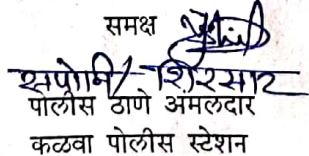 समक्ष
सपोनि/- शिरसाट
पोलीस ठाणे अंमलदार
कळवा पोलीस स्टेशन